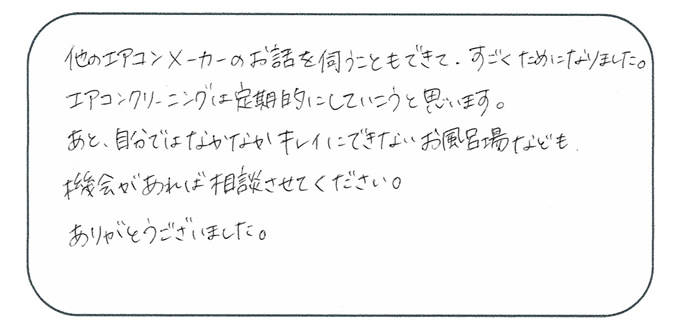 他のエアコンメーカーのお話を伺うこともできて、すごくためになりました。
エアコンクリーニングは定期的にしていこうと思います。
あと、自分ではなかなかキレイにできないお風呂場なども、
機会があれば相談させてください。
ありがとうございました。